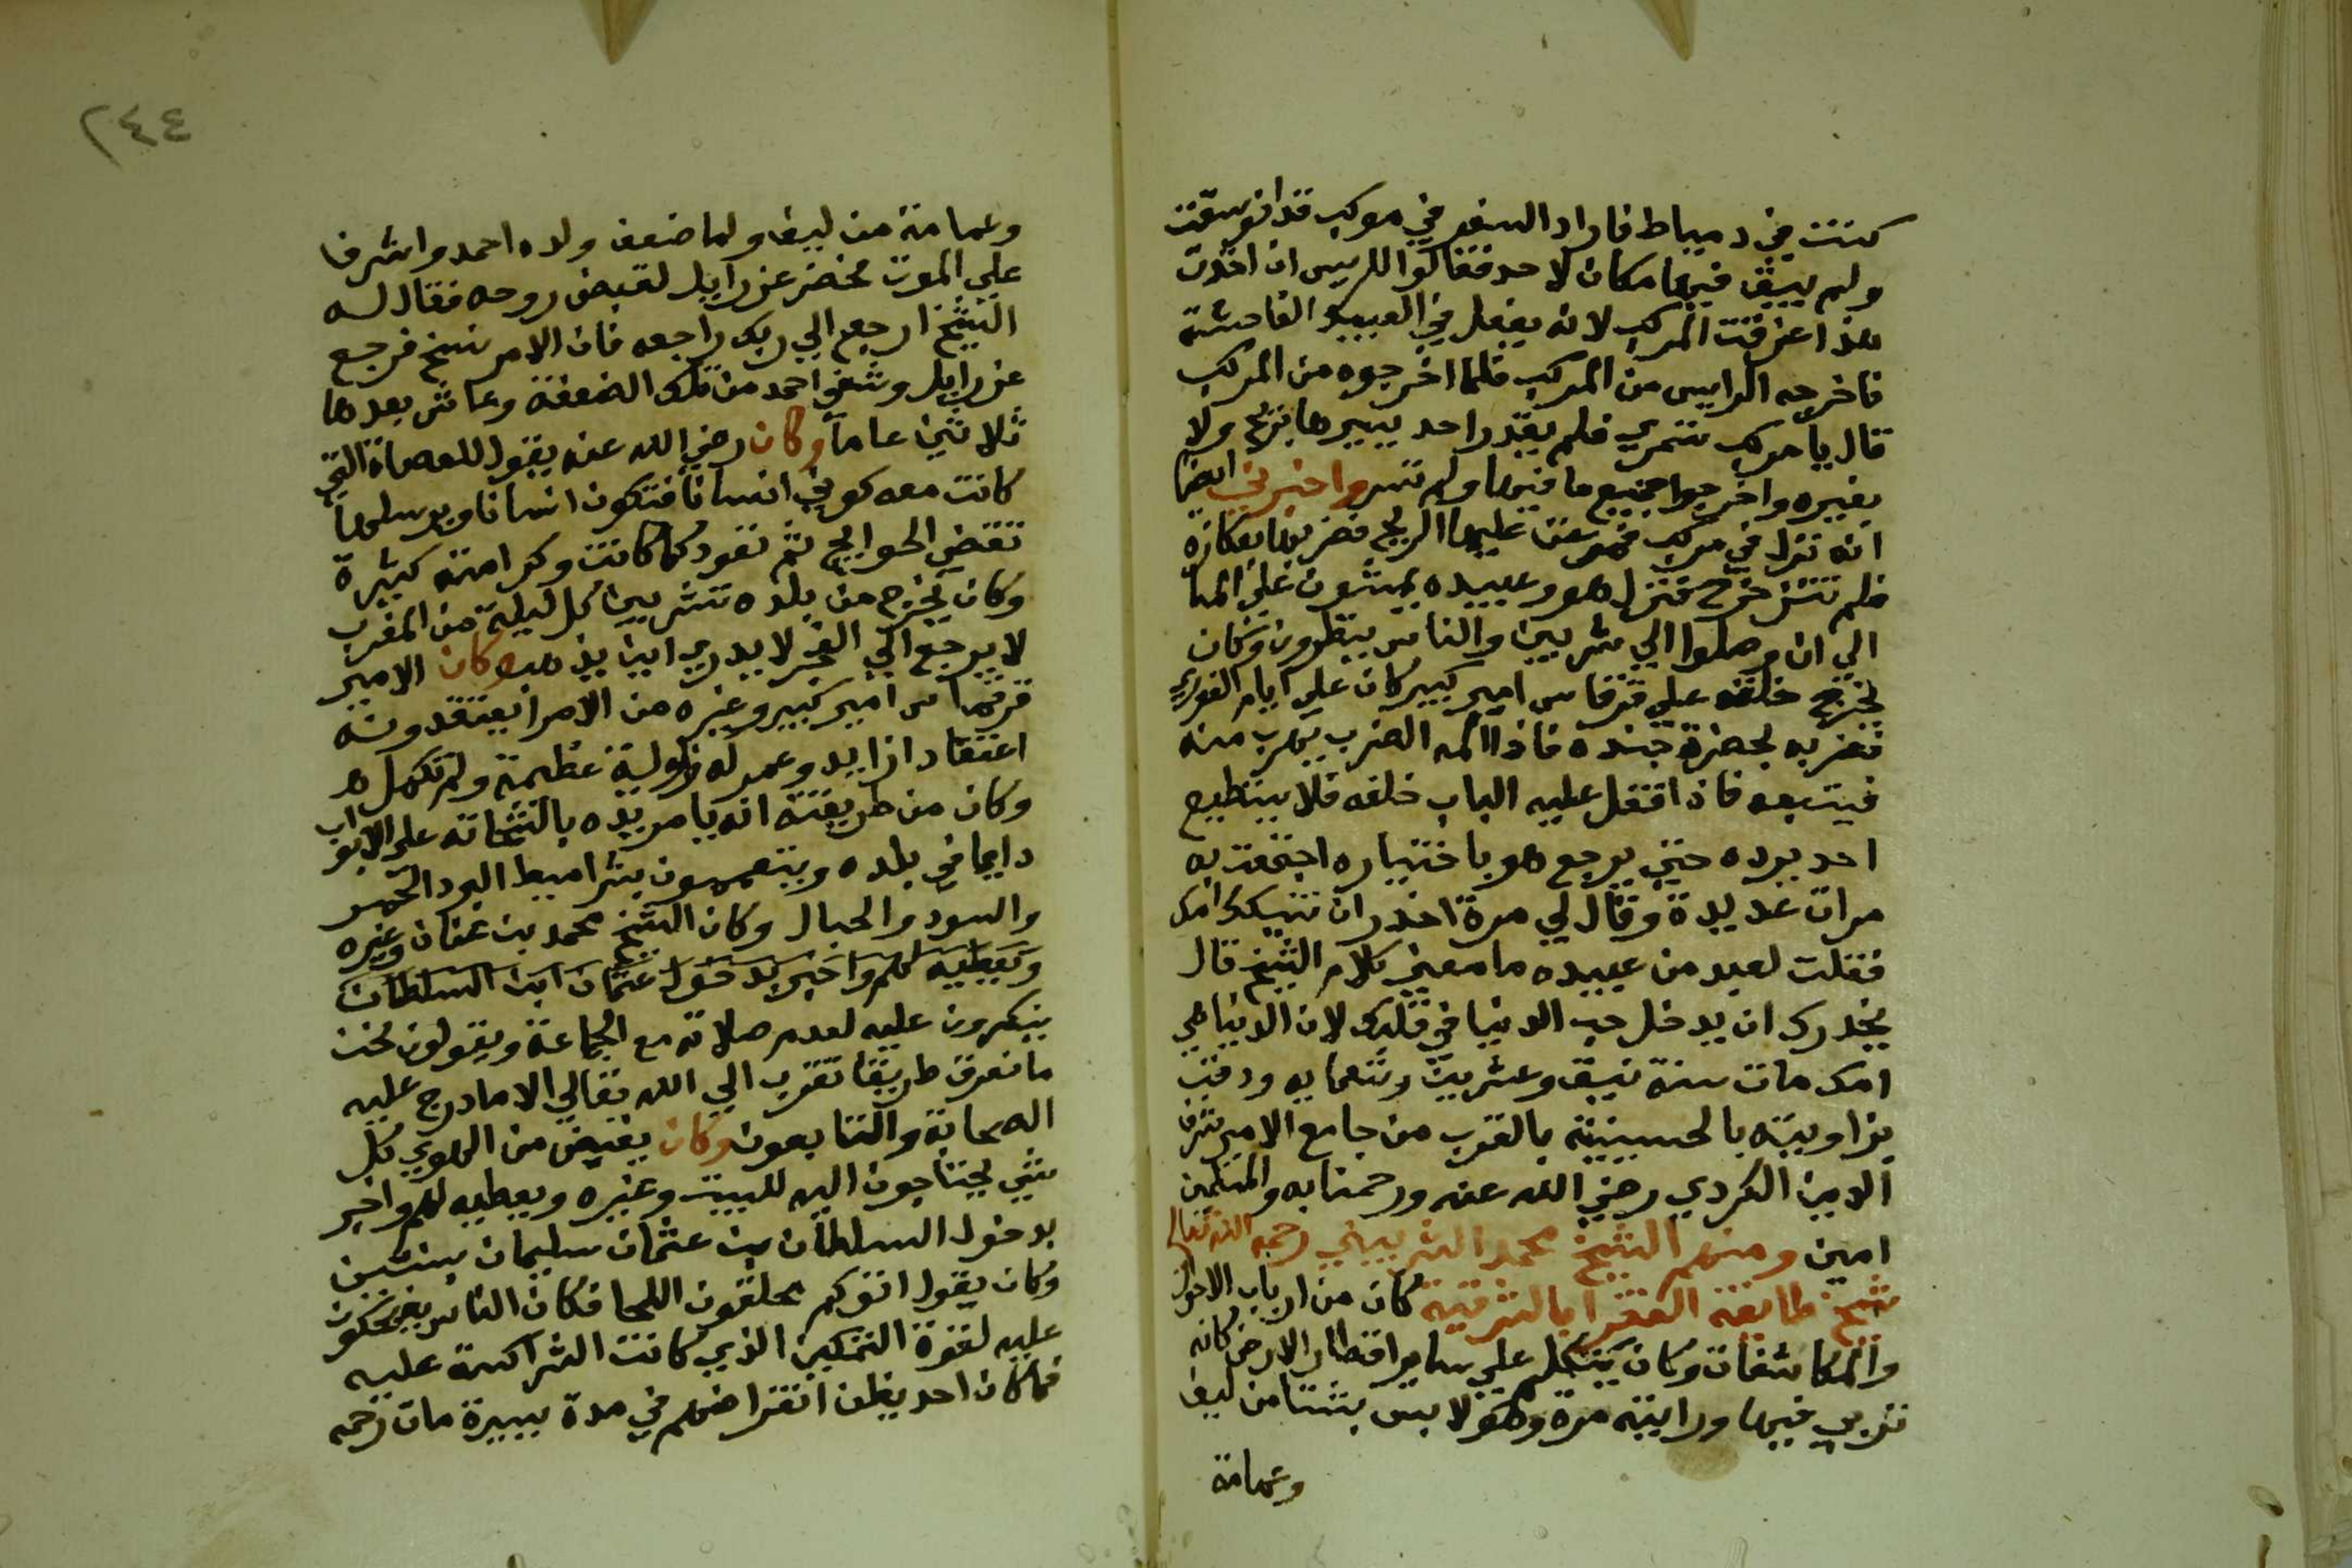 كنت في دمياط فاراد السفر في مركب قد انوسقت
ولم يبق فيها مكان لاحد فقالوا للريس ان اخذت
هذا غرقت المركب لانه يفعل في العبيد الفاحشة
فاخرجه الرايس من المركب فلما اخرجوه من المركب
قال يا مركب تسمري فلم يقدر احد يسيرها بريح ولا
بغيره واخرجوا جميع ما فيها ولم تسر واخبرني ايضا
انه نزل في مركب فوحلت عليها الريح فضربها بعكازه
فلم تتزحزح فنزل هو وعبيده يمشون علي الما
الي ان وصلوا الي شربين والناس ينظرون وكان
يخرج خلقه علي قرقماس امير كبير كان علي ايام الغوري
فضربه بحضرة جنده فاذا المه الضرب يهرب منه
فيتبعه فاذا قفل عليه الباب خلفه فلا يستطيع
احد يرده حتي يرجع هو باختياره اجتمعت به
مرات عديدة وقال لي مرة احذر ان تنيكك امك
فقلت لعبد من عبيده ما معني كلام الشيخ قال
يحذرك ان يدخل حب الدنيا في قلبك لان الدنيا هي
امك مات سنة نيف وعشرين وتسعمايه ودفن
بزاويته بالحسينية بالقرب من جامع الامير شرف
الدين الكردي رضي الله عنه ورحمنا به والمسلمين
امين ومنهم الشيخ محمد الشربيني رحمه الله تعالي
شيخ طايفة الفقرا بالشرقية كان من ارباب الاحوال
والمكاشفات وكان يتكلم علي ساير اقطار الارض كانه
تربي فيها ورايته مرة وهو لابس بشتا من ليف
وعمامة
٢٤٤
وعمامة من ليف ولما ضعف ولده احمد واشرف
علي الموت فحضر عزرايل لقبض روحه فقال له
الشيخ ارجع الي ربك راجعه فان الامر نسخ فرجع
عزرايل وشفي احمد من تلك الضعفة وعاش بعدها
ثلاثين عاما وكان رضي الله عنه يقول للعصاة التي
كانت معه كوني انسانا فتكون انسانا ويرسلها
تقضي الحوايج ثم تعود كما كانت وكرامته كثيرة
وكان يخرج من بلده شربين كل ليلة من المغرب
لا يرجع الي الفجر لا يدري اين يذهب وكان الامير
قرقماس امير كبير وغيره من الامرا يعتقدونه
اعتقادا زايد وعمر له زاوية عظيمة ولم تكمل هـ
وكان من طريقته انه يامر يده بالشحاته علي الابواب
دايما في بلده ويتعممون بشراميط البرد الحمر
والسود والحبال وكان الشيخ محمد بن عنان وغيره
ويعطيه لهم واخبر بدخول عثمان ابن السلطان
ينكرون عليه لعدم صلاته مع الجماعة ويقولون نحن
ما نعرف طريقا تقرب الي الله تعالي الا ما درج عليه
الصحابة والتابعون وكان يقبض من الهوي كل
شي يحتاجون اليه للبيت وغيره ويعطيه لهم واخبر
بدخول السلطان بن عثمان سليمان بسنتين
وكان يقول اتوكم محلقون اللحا فكان الناس يضحكون
عليه لقوة التمكين الذي كانت الشراكسة عليه
فما كان احد يظن انقراضهم في مدة يسيرة مات رحمه